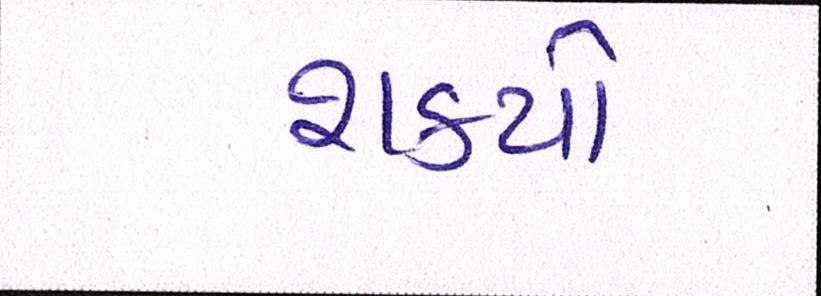 શકયો